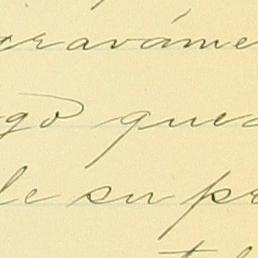 graváme
go que
le su pr